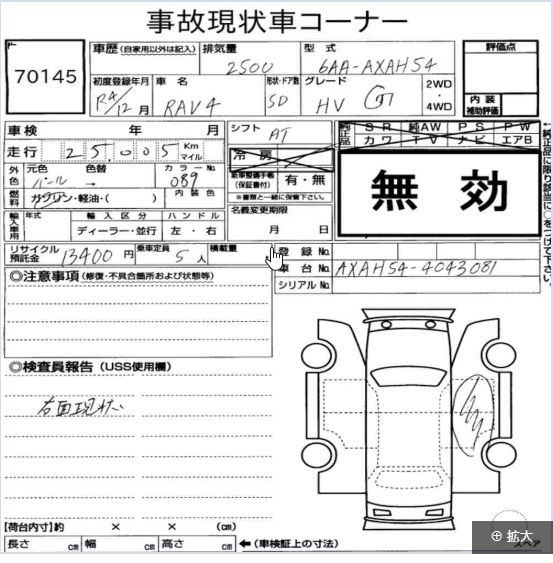 事故現状車コーナー
70145
車歴 (自家用以外は記入) 排気量 型式
2500 6AA-AXAH54
評価点
初度登録年月 車名 形状・ドア数 グレード 2WD
・
4WD
R4/12月 RAV4 5D HV G
内装
補助評価
車検 年 月 シフト AT
純正品 SR 純AW PS PW
カワ TV ナビ エアB
走行 25,005 Km
マイル
冷房
外色 元色 色替 カラーNo.
パール → 089
新車整備手帳
(保証書付) 有・無
※書類と一緒に保管下さい。
無効
燃料 ガソリン・軽油・( ) 内装色
輸入車用 年式 輸入区分 ハンドル
ディーラー・並行 左・右
名義変更期限
月 日
リサイクル
預託金 13400円 乗車定員 5人 積載量
登録No.
車台No. AXAH54-4043081
シリアルNo.
←純正品に限り該当に○をつけて下さい。
◎注意事項 (修復・不具合箇所および状態等)
◎検査員報告 (USS使用欄)
右面現状
【荷台内寸】約 × × (cm)
長さ cm 幅 cm 高さ cm ←(車検証上の寸法)
スペア
拡大